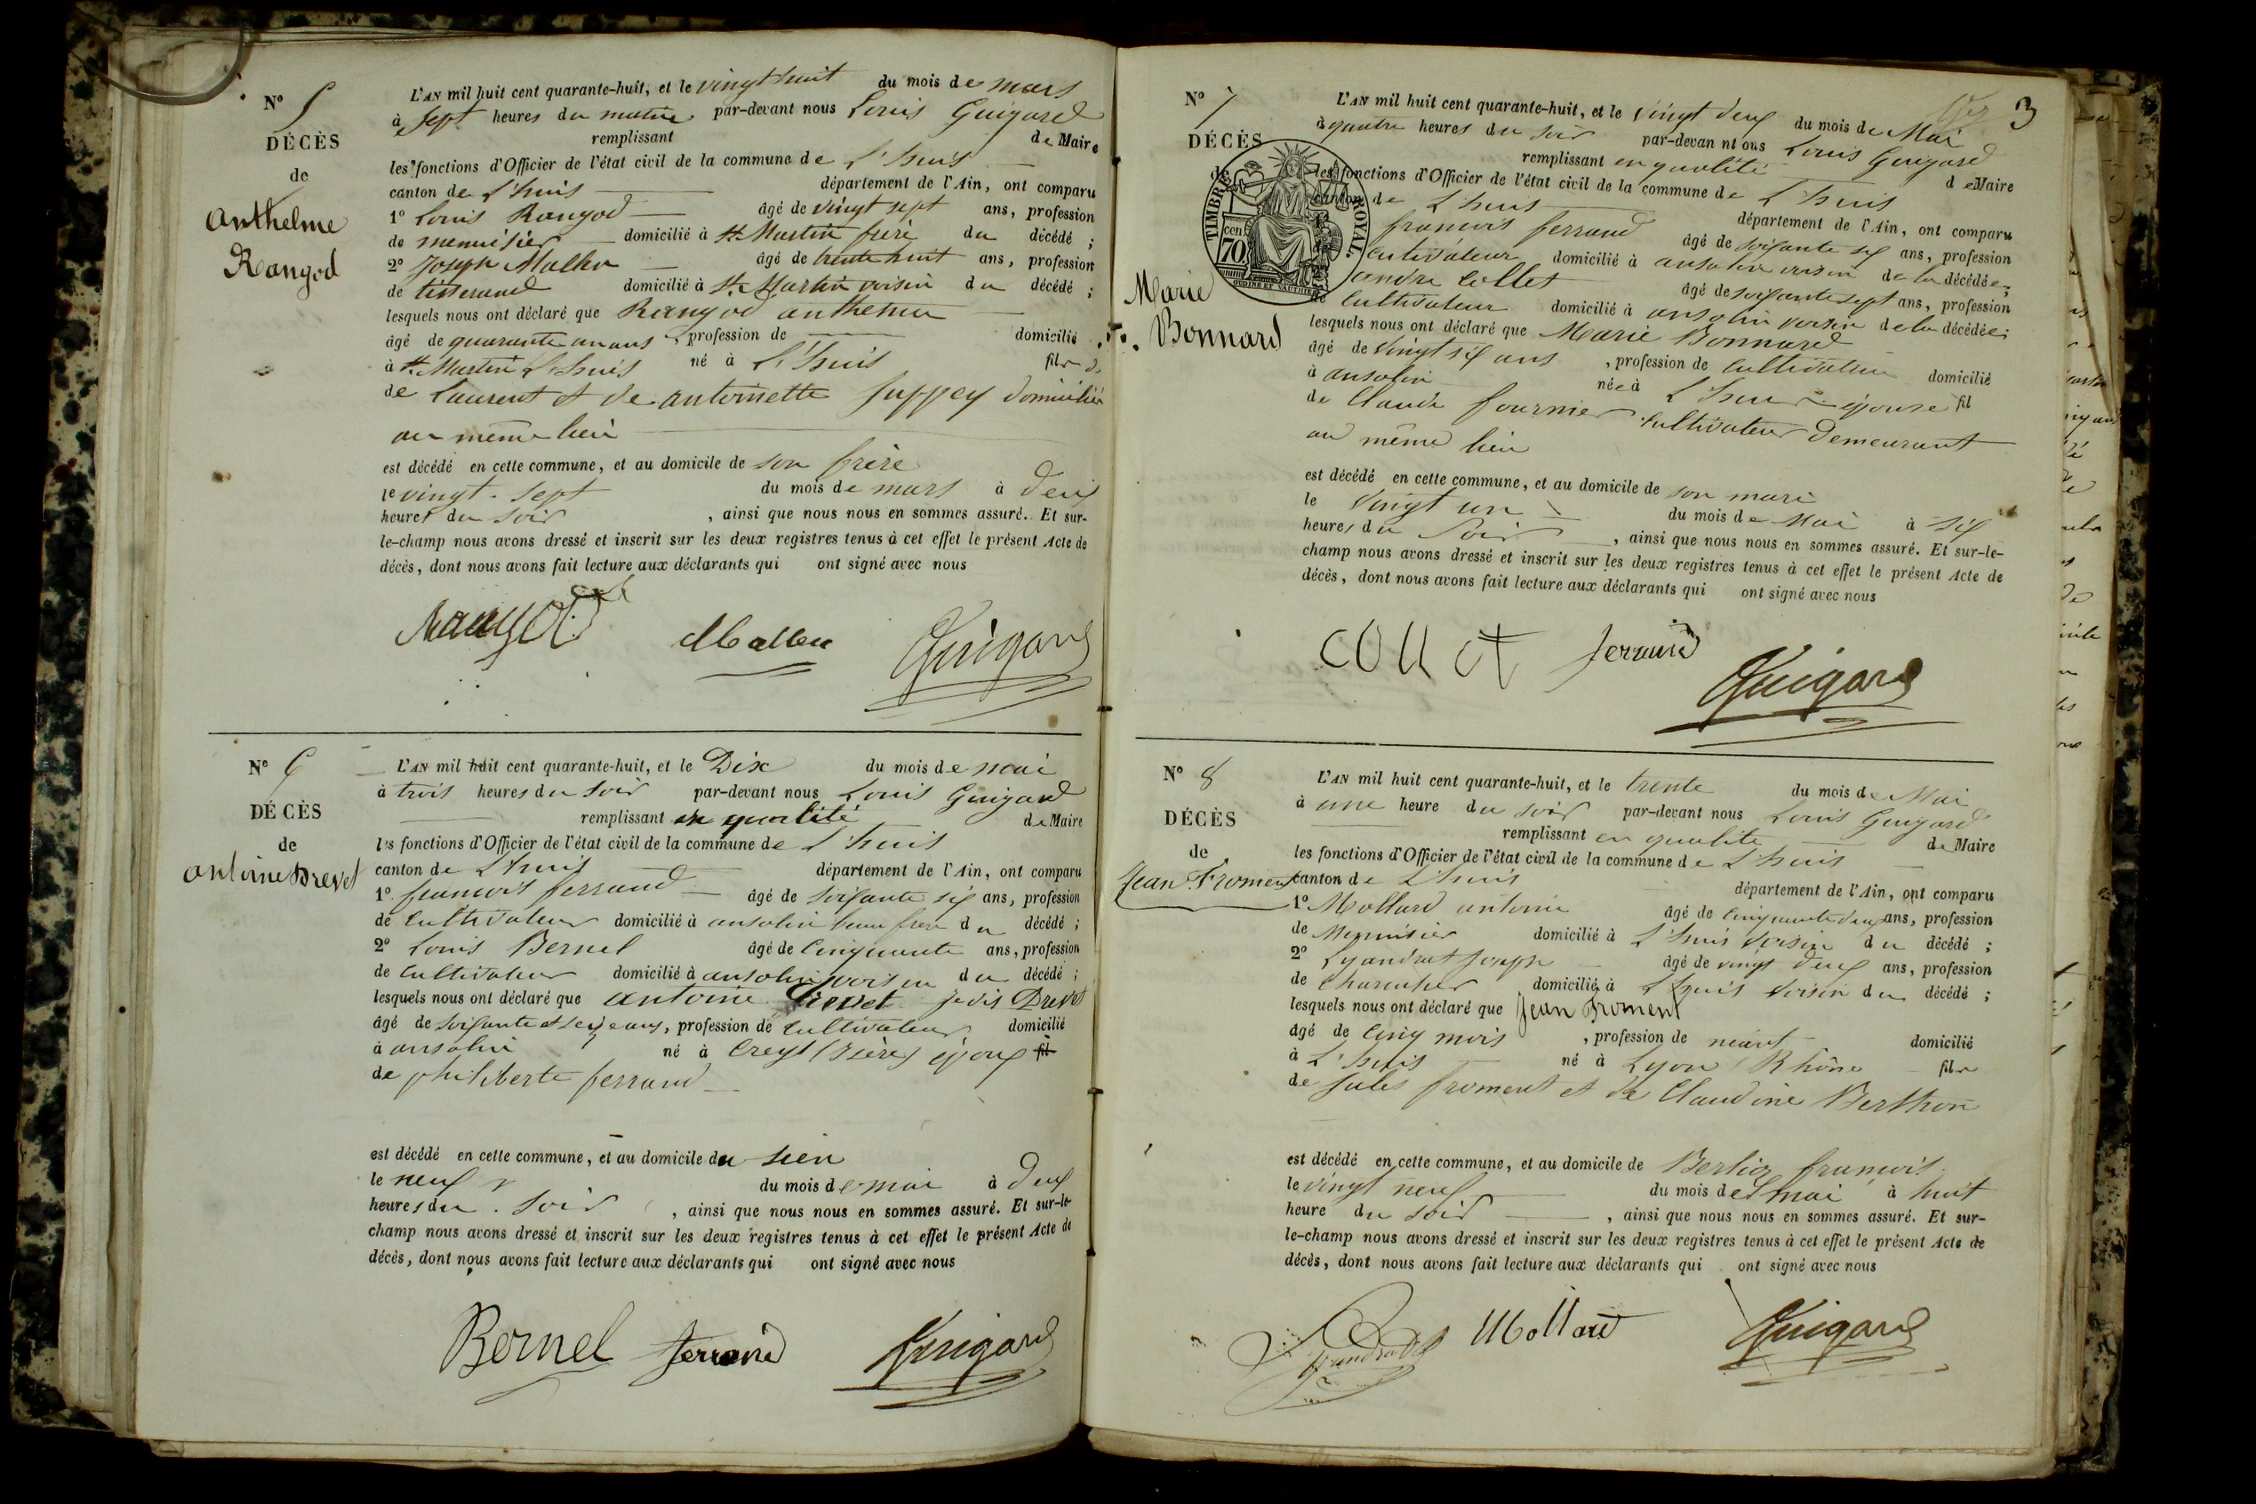 N° 5
DÉCÈS
de
anthelme
Rangod
L'AN mil huit cent quarante-huit, et le vingt huit du mois de mars
à sept heures du matin par-devant nous Louis Guigard
remplissant de Maire
les fonctions d'Officier de l'état civil de la commune de L'huis
canton de L'huis département de l'Ain, ont comparu
1° Louis Rangod âgé de vingt sept ans, profession
de menuisier domicilié à St Martin frère du décédé ;
2° Joseph Mallen âgé de trente huit ans, profession
de tisserand domicilié à St Martin voisin du décédé ;
lesquels nous ont déclaré que Rangod anthelme
âgé de quarante un ans, profession de domicilié
à St Martin L'huis né à L'huis fils de
de Laurent et de antoinette Juppey domicilié
au même lieu
est décédé en cette commune, et au domicile de son frère
le vingt-sept du mois de mars à deux
heures du soir, ainsi que nous nous en sommes assuré. Et sur-
le-champ nous avons dressé et inscrit sur les deux registres tenus à cet effet le présent Acte de
décès, dont nous avons fait lecture aux déclarants qui ont signé avec nous
Rangod Mallen Guigard
N° 6
DÉCÈS
de
antoine Drevet
L'AN mil huit cent quarante-huit, et le Dix du mois de mai
à trois heures du soir par-devant nous Louis Guigard
remplissant en qualité de Maire
les fonctions d'Officier de l'état civil de la commune de L'huis
canton de L'huis département de l'Ain, ont comparu
1° francois ferrand âgé de soixante six ans, profession
de cultivateur domicilié à ansolin beau frere du décédé ;
2° Louis Bernel âgé de cinquante ans, profession
de cultivateur domicilié à ansolin voisin du décédé ;
lesquels nous ont déclaré que antoine je dis Drevet
âgé de soixante et seize ans, profession de cultivateur domicilié
à ansolin né à Creys (Isère) époux fil
de philiberte ferrand
est décédé en cette commune, et au domicile du sien
le neuf du mois de mai à deux
heures du soir, ainsi que nous nous en sommes assuré. Et sur-le-
champ nous avons dressé et inscrit sur les deux registres tenus à cet effet le présent Acte de
décès, dont nous avons fait lecture aux déclarants qui ont signé avec nous
Bernel ferrand Guigard
3
N° 7
DÉCÈS
de
Marie
Bonnard
TIMBRE ROYAL.
70 cen
L'AN mil huit cent quarante-huit, et le vingt deux du mois de Mai
à quatre heures du soir par-devan nt ous Louis Guigard
remplissant en qualité de Maire
les fonctions d'Officier de l'état civil de la commune de L'huis
canton de L'huis département de l'Ain, ont comparu
francois ferrand âgé de soixante six ans, profession
cultivateur domicilié à ansolin voisin de la décédée ;
andre collet âgé de soixante sept ans, profession
de cultivateur domicilié à ansolin voisin de la décédée ;
lesquels nous ont déclaré que Marie Bonnard
âgé de vingt six ans, profession de cultivatrice domicilié
à ansolin née à L'huis épouse fil
de Claude fournier cultivateur demeurant
au même lieu
est décédé en cette commune, et au domicile de son mari
le vingt un du mois de Mai à six
heures du soir, ainsi que nous nous en sommes assuré. Et sur-le-
champ nous avons dressé et inscrit sur les deux registres tenus à cet effet le présent Acte de
décès, dont nous avons fait lecture aux déclarants qui ont signé avec nous
collet ferrand Guigard
N° 8
DÉCÈS
de
Jean Froment
L'AN mil huit cent quarante-huit, et le trente du mois de Mai
à une heure du soir par-devant nous Louis Guigard
remplissant en qualité de Maire
les fonctions d'Officier de l'état civil de la commune de L'huis
canton de L'huis département de l'Ain, ont comparu
1° Mollard antoine âgé de cinquante deux ans, profession
de Menuisier domicilié à L'huis voisin du décédé ;
2° Joseph âgé de vingt deux ans, profession
de charcutier domicilié à L'huis voisin du décédé ;
lesquels nous ont déclaré que Jean Froment
âgé de cinq mois, profession de néant domicilié
à L'huis né à Lyon Rhône fils
de Jules froment et de Claudine Berthon
est décédé en cette commune, et au domicile de Berlioz francois
le vingt neuf du mois de mai à huit
heure du soir, ainsi que nous nous en sommes assuré. Et sur-
le-champ nous avons dressé et inscrit sur les deux registres tenus à cet effet le présent Acte de
décès, dont nous avons fait lecture aux déclarants qui ont signé avec nous
Mollard Guigard